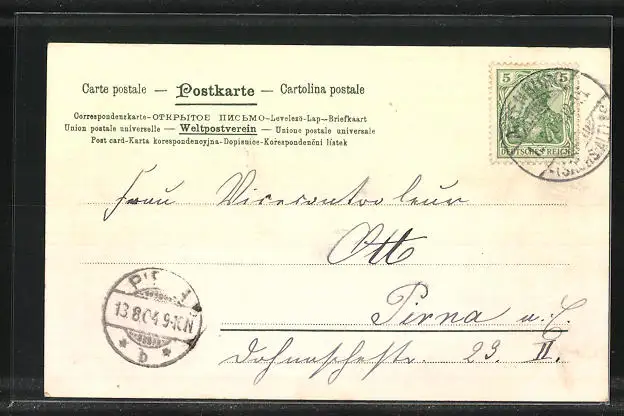 Carte postale — Postkarte — Cartolina postale
Correspondenzkarte-ОТКРЫТОЕ ПИСЬМО-Levelező-Lap-Briefkaart
Union postale universelle — Weltpostverein — Unione postale universale
Post card-Karta korespondencyjna-Dopisnice-Korespondenční lístek
5 5
DEUTSCHES REICH
Frau Vicecontroleur
Ott
Pirna a. E.
Dohnaschestr. 23 II.
13.8.04 9-10N
* b *